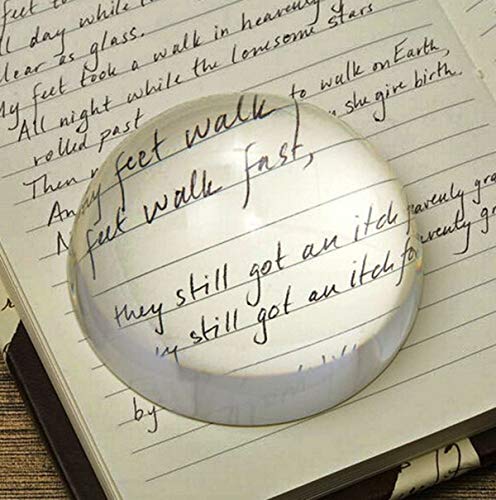 feet to
ll day while th
lear as glass.
My feet took a walk in heavenly
All night while the lonesome stars
rolled past
Then to walk on Earth,
An my feet walk she give birth.
feet walk fast,
they still got an itch heavenly gra
still got an itch fo venly gr
by